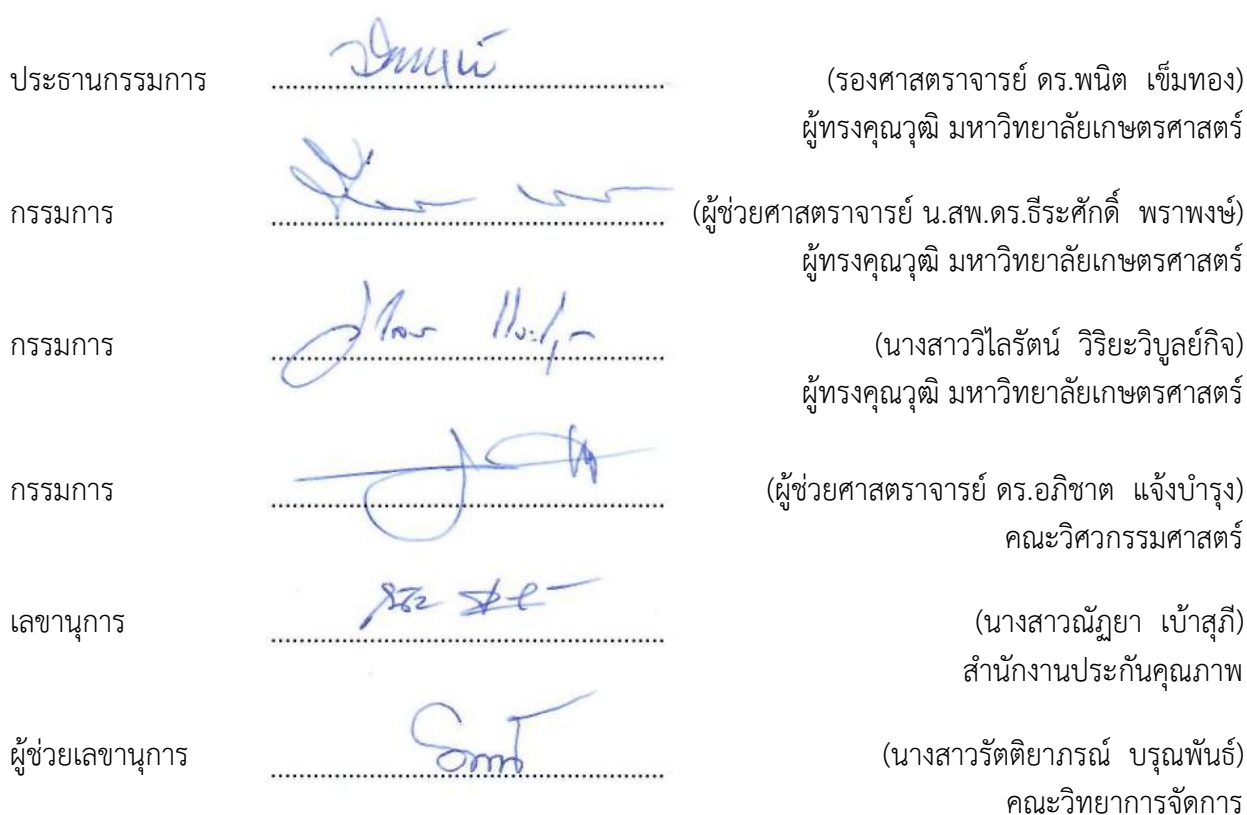 ประธานกรรมการ (รองศาสตราจารย์ ดร.พนิต เข็มทอง)
ผู้ทรงคุณวุฒิ มหาวิทยาลัยเกษตรศาสตร์
กรรมการ (ผู้ช่วยศาสตราจารย์ น.สพ.ดร.ธีระศักดิ์ พราพงษ์)
ผู้ทรงคุณวุฒิ มหาวิทยาลัยเกษตรศาสตร์
กรรมการ (นางสาววิไลรัตน์ วิริยะวิบูลย์กิจ)
ผู้ทรงคุณวุฒิ มหาวิทยาลัยเกษตรศาสตร์
กรรมการ (ผู้ช่วยศาสตราจารย์ ดร.อภิชาต แจ้งบำรุง)
คณะวิศวกรรมศาสตร์
เลขานุการ (นางสาวณัฏยา เบ้าสุภี)
สำนักงานประกันคุณภาพ
ผู้ช่วยเลขานุการ (นางสาวรัตติยาภรณ์ บรุณพันธ์)
คณะวิทยาการจัดการ